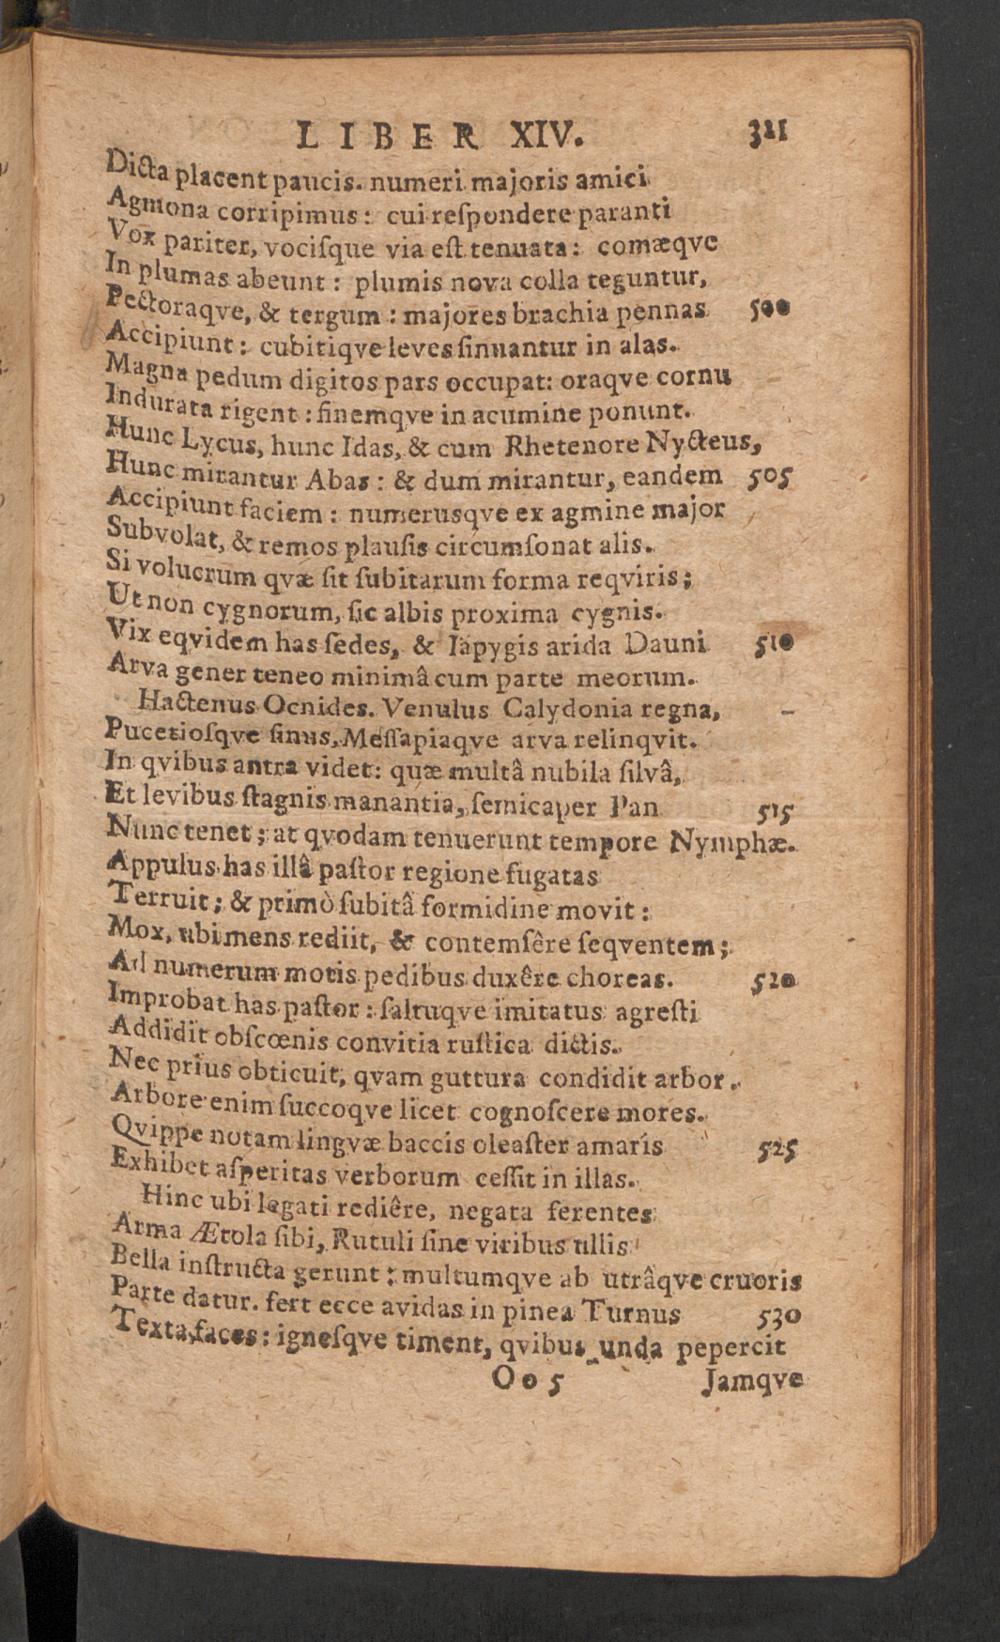 LIBER XIV. 321
Dicta placent paucis. numeri majoris amici
Agmona corripimus: cui reſpondere paranti
Vox pariter, vociſque via eſt tenuata: comæqve
In plumas abeunt: plumis nova colla teguntur,
Pectoraqve, & tergum: majores brachia pennas 500
Accipiunt: cubitiqve leves ſinuantur in alas.
Magna pedum digitos pars occupat: oraqve cornu
Indurata rigent: finemqve in acumine ponunt.
Hunc Lycus, hunc Idas, & cum Rhetenore Nycteus,
Hunc mirantur Abas: & dum mirantur, eandem 505
Accipiunt faciem: numerusqve ex agmine major
Subvolat, & remos plauſis circumſonat alis.
Si volucrum qvæ ſit ſubitarum forma reqviris;
Ut non cygnorum, ſic albis proxima cygnis.
Vix eqvidem has ſedes, & Iapygis arida Dauni 510
Arva gener teneo minimâ cum parte meorum.
Hactenus Ocnides. Venulus Calydonia regna,
Pucetioſqve ſinus, Meſſapiaqve arva relinqvit.
In qvibus antra videt: quæ multâ nubila ſilvâ,
Et levibus ſtagnis manantia, ſemicaper Pan 515
Nunc tenet; at qvodam tenuerunt tempore Nymphæ.
Appulus has illâ paſtor regione fugatas
Terruit; & primò ſubitâ formidine movit:
Mox, ubi mens rediit, & contemſêre ſeqventem;
Ad numerum motis pedibus duxêre choreas. 520
Improbat has paſtor: ſaltuqve imitatus agreſti
Addidit obſcœnis convitia ruſtica dictis.
Nec prius obticuit, qvam guttura condidit arbor.
Arbore enim ſuccoqve licet cognoſcere mores.
Qvippe notam lingvæ baccis oleaſter amaris 525
Exhibet aſperitas verborum ceſſit in illas.
Hinc ubi legati rediêre, negata ferentes
Arma Ætola ſibi, Rutuli ſine viribus ullis
Bella inſtructa gerunt: multumqve ab utrâqve cruoris
Parte datur. fert ecce avidas in pinea Turnus 530
Texta faces: igneſqve timent, qvibus unda pepercit
Oo 5 Jamqve